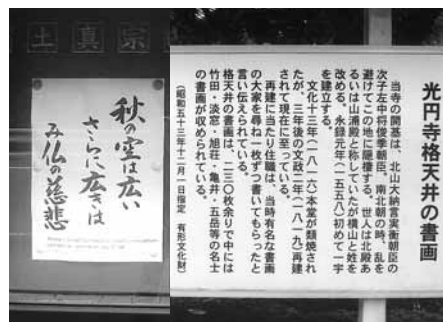 土真宗
秋の空は広い
さらに広きは
み仏の慈悲
光円寺格天井の書画
当寺の開基は、北山大納言実衡朝臣の
次子左中将俊季朝臣、南北朝の時、乱を
避けてこの地に隠棲する。世人は北殿あ
るいは山浦殿と称していたが横山と姓を
改める。永録元年(一五五八)初めて一宇
を建立する。
文化十三年(一八一六)本堂が類焼され
たが、三年後の文政二年(一八一九)再建
されて現在に至っている。
再建に当たり住職は、当時有名な書画
の大家を尋ね一枚ずつ書いてもらったと
言い伝えられている。
格天井の書画は、二三〇枚余りで中には
竹田・淡窓・旭荘・亀井・五岳等の名士
の書画が収められている。
(昭和五十三年十二月一日指定 有形文化財)